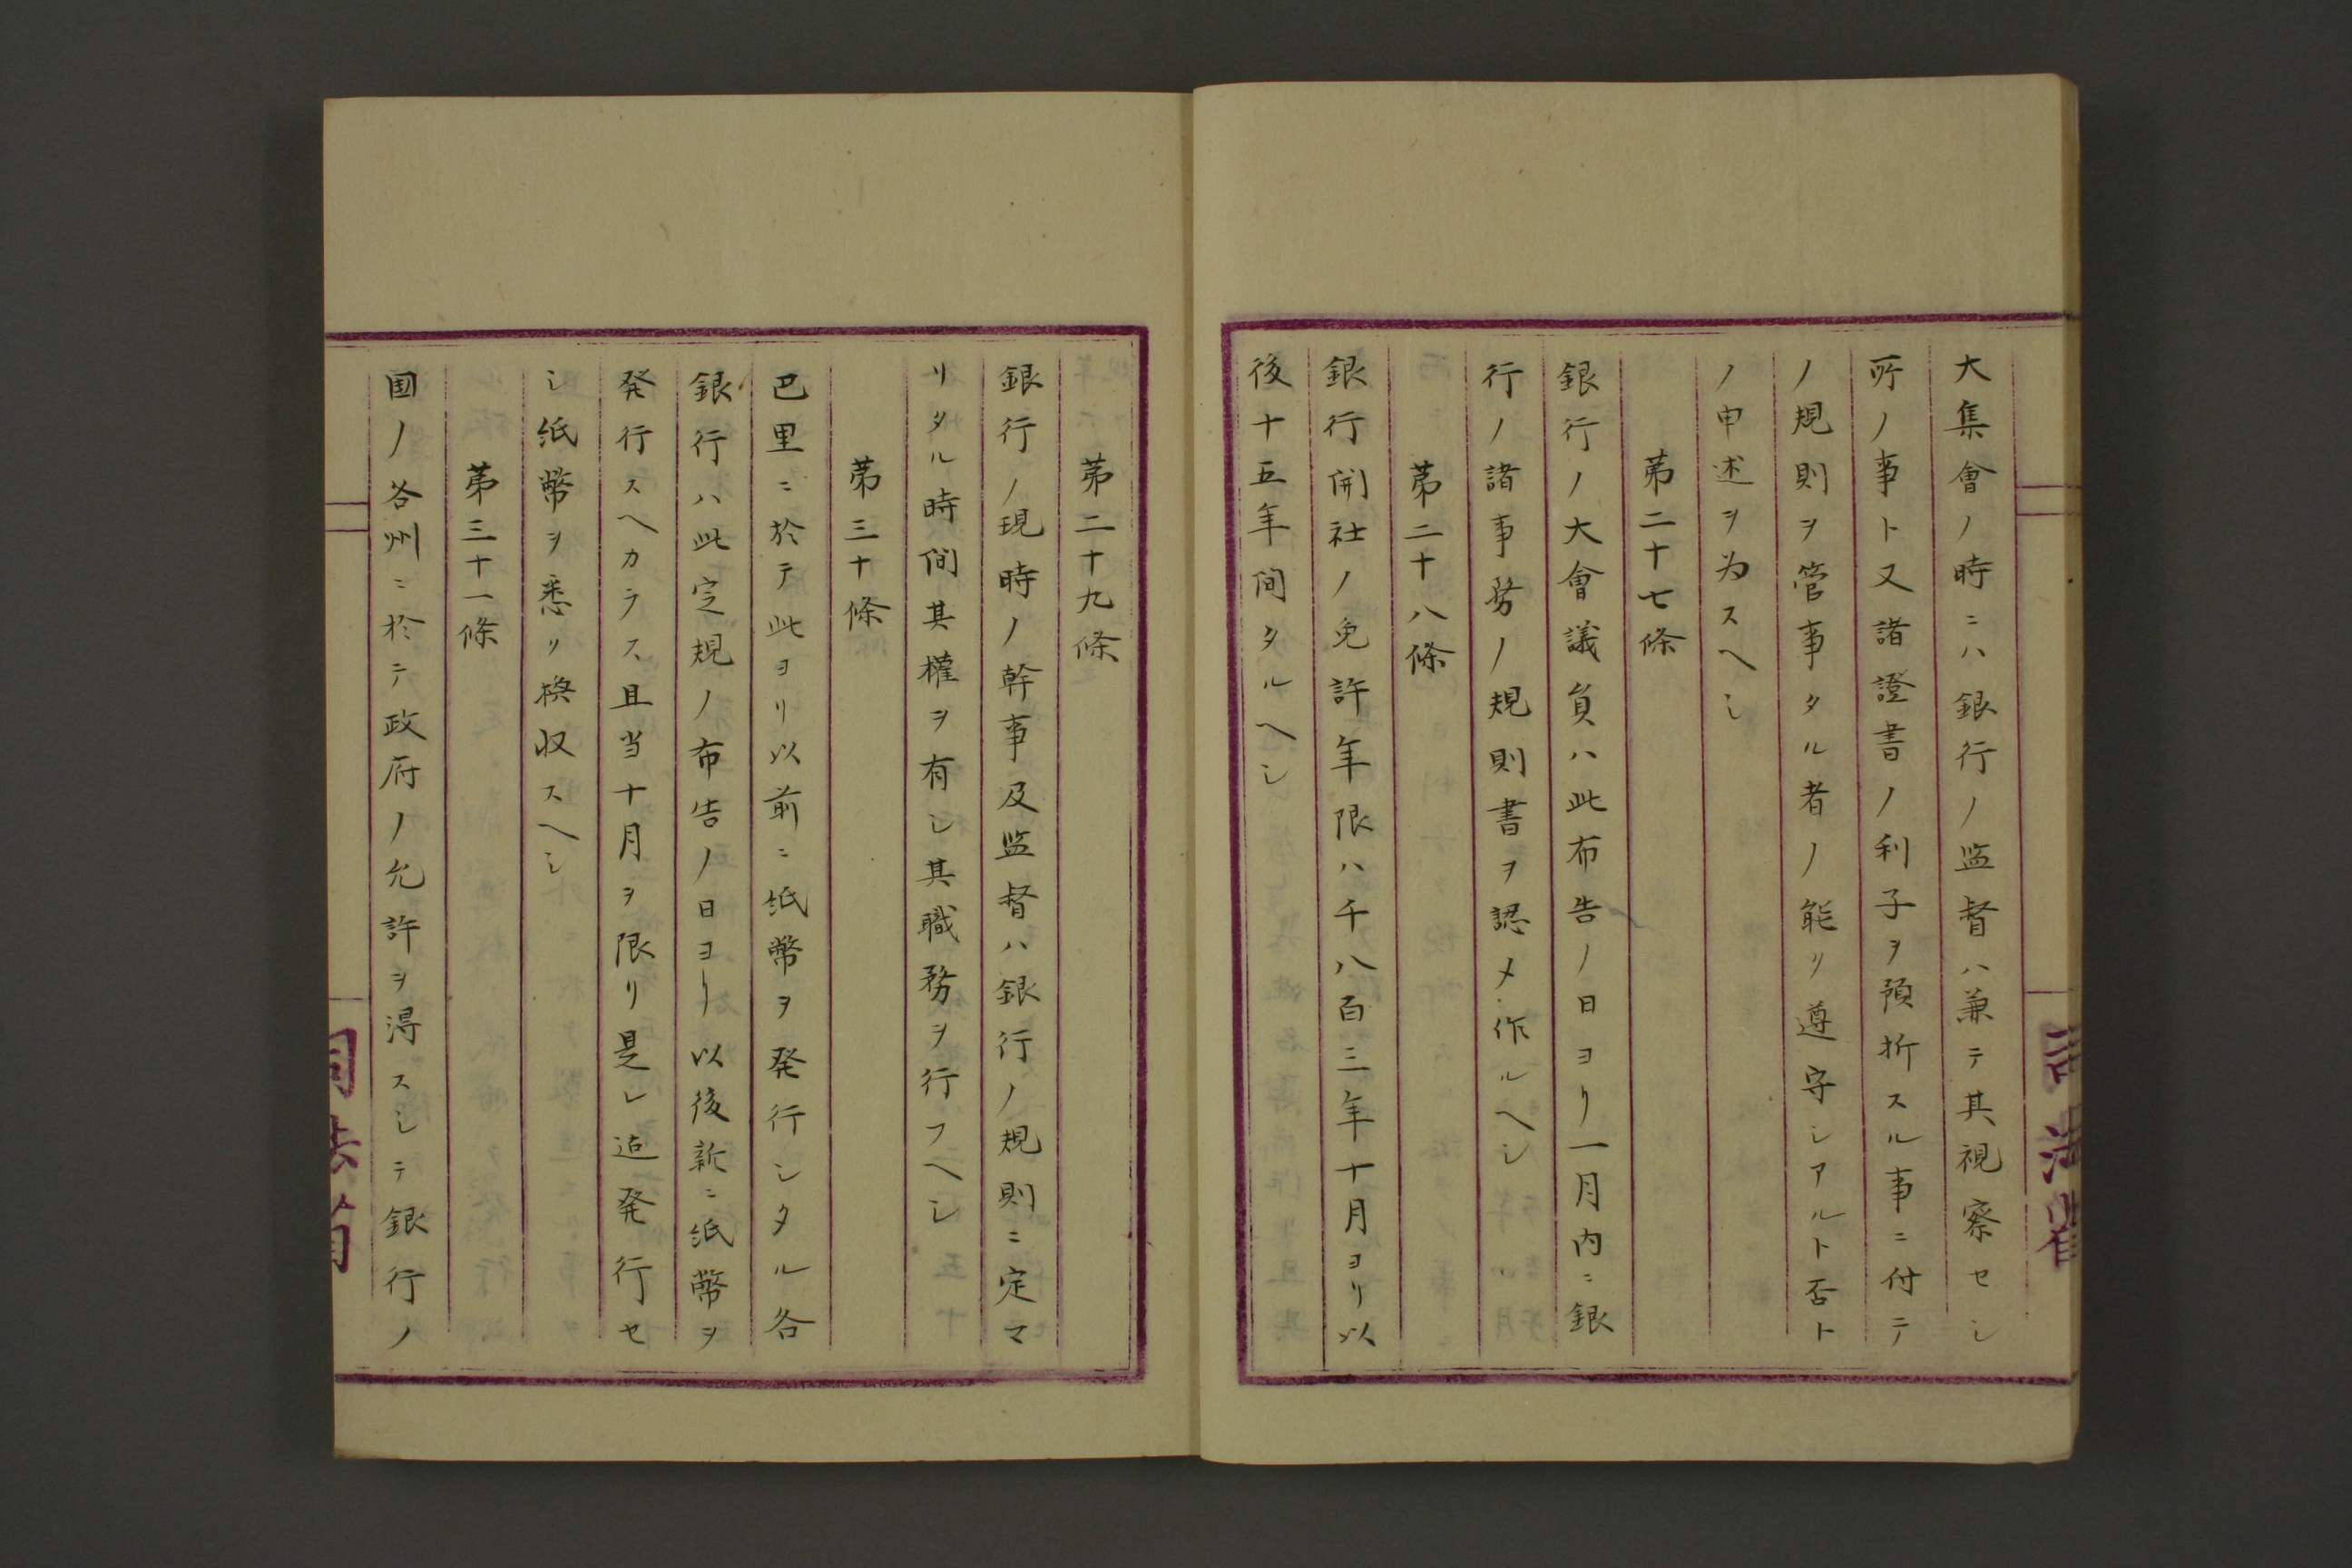 大集會ノ時ニハ銀行ノ监督ハ兼テ其視察セシ
所ノ事ト又諸證書ノ利子ヲ預折スル事ニ付テ
ノ規則ヲ管事タル者ノ能リ遵守シアルト否ト
ノ申述ヲ为スヘシ
苐二十七條
銀行ノ大會議負ハ此布告ノ日ヨリ一月内ニ銀
行ノ諸事务ノ規則書ヲ認メ作ルヘシ
苐二十八條
銀行開社ノ免許年限ハ千八百三年十月ヨリ以
後十五年间タルヘシ
苐二十九條
銀行ノ現時ノ幹事及监督ハ銀行ノ規則ニ定マ
リタル時间其権ヲ有シ其職務ヲ行フヘシ
苐三十條
巴里ニ於テ此ヨリ以前ニ紙幣ヲ発行シタル各
銀行ハ此定規ノ布告ノ日ヨリ以後新ニ紙幣ヲ
発行スヘカラス且当十月ヲ限リ是レ迠発行セ
シ紙幣ヲ悉リ換収スヘシ
苐三十一條
国ノ各州ニ於テ政府ノ允許ヲ得スシテ銀行ノ
司法省